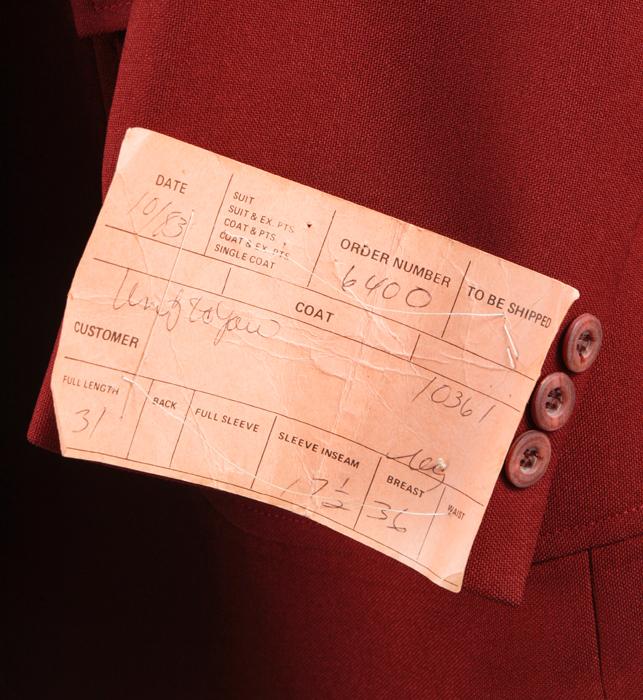 DATE
10/83
SUIT
SUIT & EX. PTS.
COAT & PTS.
COAT & EX. PTS.
SINGLE COAT
ORDER NUMBER
6400
TO BE SHIPPED
COAT
CUSTOMER
10361
FULL LENGTH
31
BACK
FULL SLEEVE
SLEEVE INSEAM
17 1/2
BREAST
36
WAIST